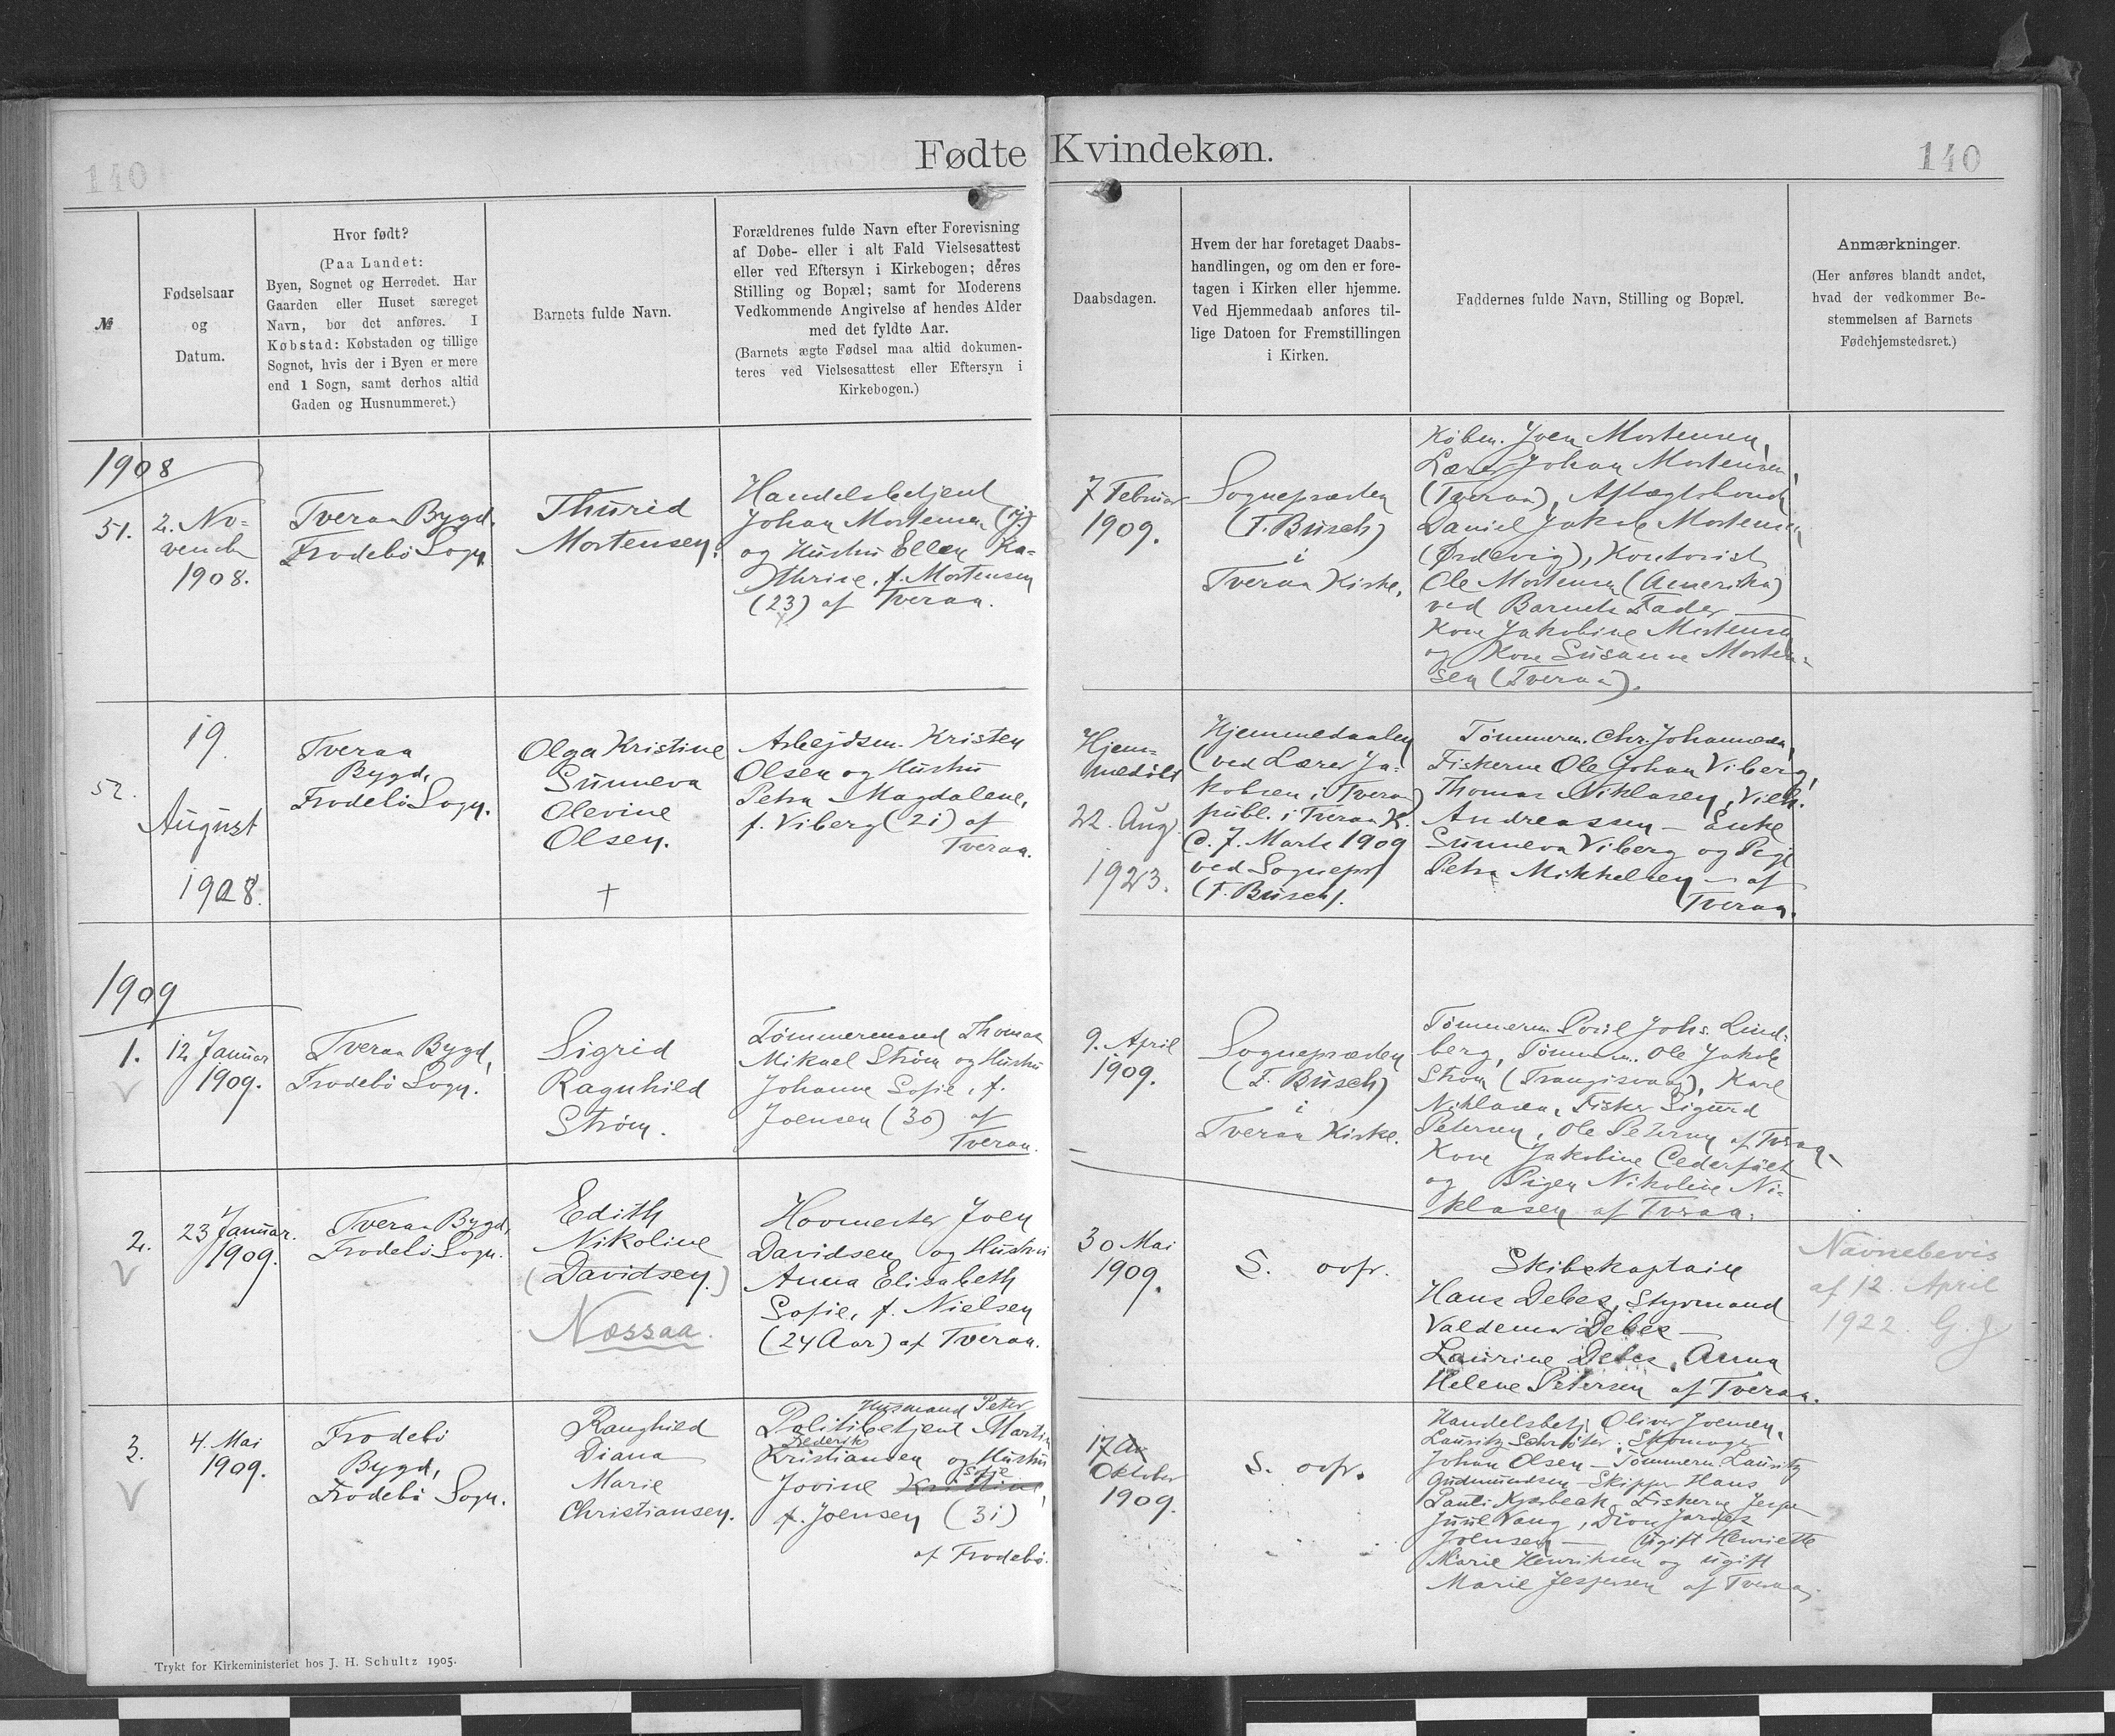 140
Fødte Kvindekøn.
140
№
Fødselsaar
og
Datum.
Hvor født?
(Paa Landet:
Byen, Sognet og Herredet. Har
Gaarden eller Huset særeget
Navn, bør det anføres. I
Købstad: Købstaden og tillige
Sognet, hvis der i Byen er mere
end 1 Sogn, samt derhos altid
Gaden og Husnummeret.)
Barnets fulde Navn.
Forældrenes fulde Navn efter Forevisning
af Døbe- eller i alt Fald Vielsesattest
eller ved Eftersyn i Kirkebogen; deres
Stilling og Bopæl; samt for Moderens
Vedkommende Angivelse af hendes Alder
med det fyldte Aar.
(Barnets ægte Fødsel maa altid dokumen-
teres ved Vielsesattest eller Eftersyn i
Kirkebogen.)
Daabsdagen.
Hvem der har foretaget Daabs-
handlingen, og om den er fore-
tagen i Kirken eller hjemme.
Ved Hjemmedaab anføres til-
lige Datoen for Fremstillingen
i Kirken.
Faddernes fulde Navn, Stilling og Bopæl.
Anmærkninger.
(Her anføres blandt andet,
hvad der vedkommer Be-
stemmelsen af Barnets
Fødehjemstedsret.)
1908
51.
2. No-
vember
1908.
Tveraa Bygd,
Frodebö Sogn.
Thurid
Mortensen.
Handelsbetjent
Johan Mortensen
og Hustru Ellen Ka-
thrine, f. Mortensen
(23) af Tveraa.
7 Februar
1909.
Sognepræsten
(F. Busch)
i
Tveraa Kirke.
Købm. Joen Mortensen,
Lærer Johan Mortensen,
(Tveraa), Aftægtsbonde
Daniel Jakob Mortensen
(Ørdevig), Kontorist
Ole Mortensen (Amerika)
ved Barnets Fader —
Kone Jakobine Mortensen
og Kone Susanne Morten-
sen (Tveraa).
52.
19.
August
1908.
Tveraa
Bygd,
Frodebö Sogn.
Olga Kristine
Sunneva
Olevine
Olsen.
+
Arbejdsm. Kristen
Olsen og Hustru
Petra Magdalene,
f. Viberg (21) af
Tveraa.
Hjem-
medöbt
22. Aug.
1923.
Hjemmedaaben
(ved Lærer Ja-
kobsen i Tveraa)
publ. i Tveraa K.
d. 7. Marts 1909
ved Sognepr
(F. Busch).
Tömmerm. Chr. Johannesen,
Fiskerne Ole Johan Viberg,
Thomas Niklasen, Vilh.
Andreassen — Enke
Sunneva Viberg og Pige
Petra Mikkelsen — af
Tveraa.
1909
1.
12 Januar
1909.
Tveraa Bygd,
Frodebö Sogn.
Sigrid
Ragnhild
Strøm.
Tömmermand Thomas
Mikael Strøm og Hustru
Johanne Sofie, f.
Joensen (30) af
Tveraa.
9. April
1909.
Sognepræsten
(F. Busch)
i
Tveraa Kirke.
Tömmerm. Poul Johs. Lind-
berg, Tömmerm. Ole Jakob
Strøm (Trangisvaag), Karl
Niklasen, Fisker Sigurd
Petersen, Ole Petersen af Tveraa,
Kone Jakobine
og Pigen Nikoline Ni-
klasen af Tveraa.
2.
23 Januar.
1909.
Tveraa Bygd,
Frodebö Sogn.
Edith
Nikoline
(Davidsen.)
Næssaa.
Hovmester Joen
Davidsen og Hustru
Anna Elisabeth
Sofie, f. Nielsen
(24 Aar) af Tveraa.
30 Mai
1909.
S. ovfr.
Skibskaptain
Hans Debes, Styrmand
Valdemar Debes —
Laurine Debes, Anna
Helene Petersen af Tveraa.
Navnebevis
af 12. April
1922. G. J
3.
4. Mai
1909.
Frodebö
Bygd,
Frodebö Sogn.
Ranghild
Diana
Marie
Christiansen.
Husmand Peter
Politibetjent Martin
Frederik
Kristiansen og Hustru
Sofie
Jovine Kristine,
f. Joensen (31)
af Frodebö.
17
Oktober
1909.
S. ovfr.
Handelsbetj. Oliver Joensen,
Lauritz Schröter, Skomager
Johan Olsen — Tömmerm. Lauritz
Gudmundsen — Skipper Hans
Pauli Kjærbech, Fiskerne Jesper
Juul Vang, Dion
Joensen — ugift Henriette
Marie Henriksen og ugift
Marie Jespersen af Tveraa.
Trykt for Kirkeministeriet hos J. H. Schultz 1905.